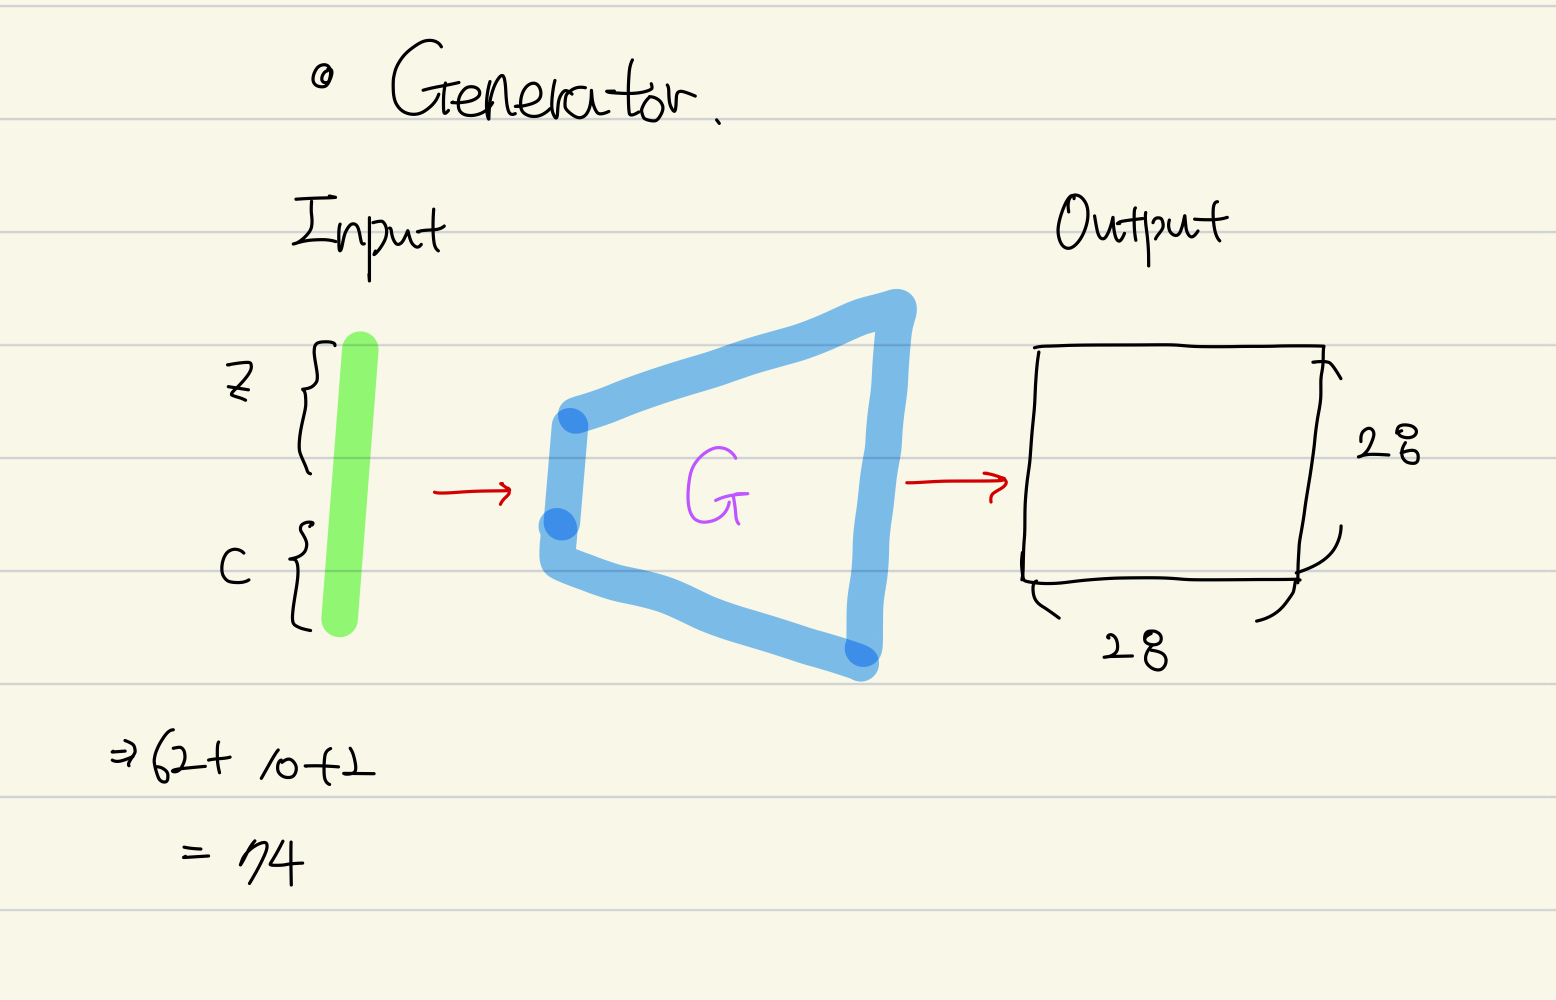 Generator.
Input
Output
Z
G
28
C
28
⇒ 62 + 10 + 2
= 74